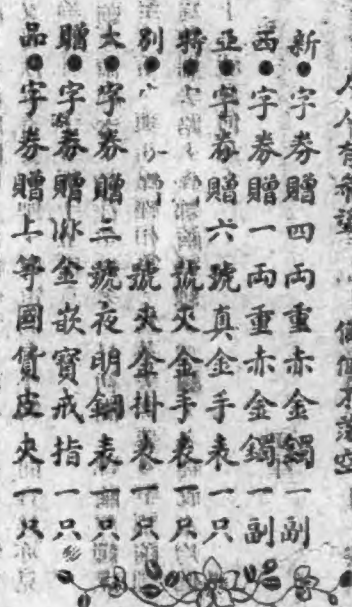 人人有希望 個個不落空
新●字券贈四兩重赤金鐲一副
西●字券贈一兩重赤金鐲一副
亞●字券贈六號真金手表一只
特●號夾金手表一只
別●號夾金掛表一只
大●字券贈三號夜明鋼表一只
贈●字券贈金嵌寶戒指一只
品●字券贈上等國貨皮夾一只